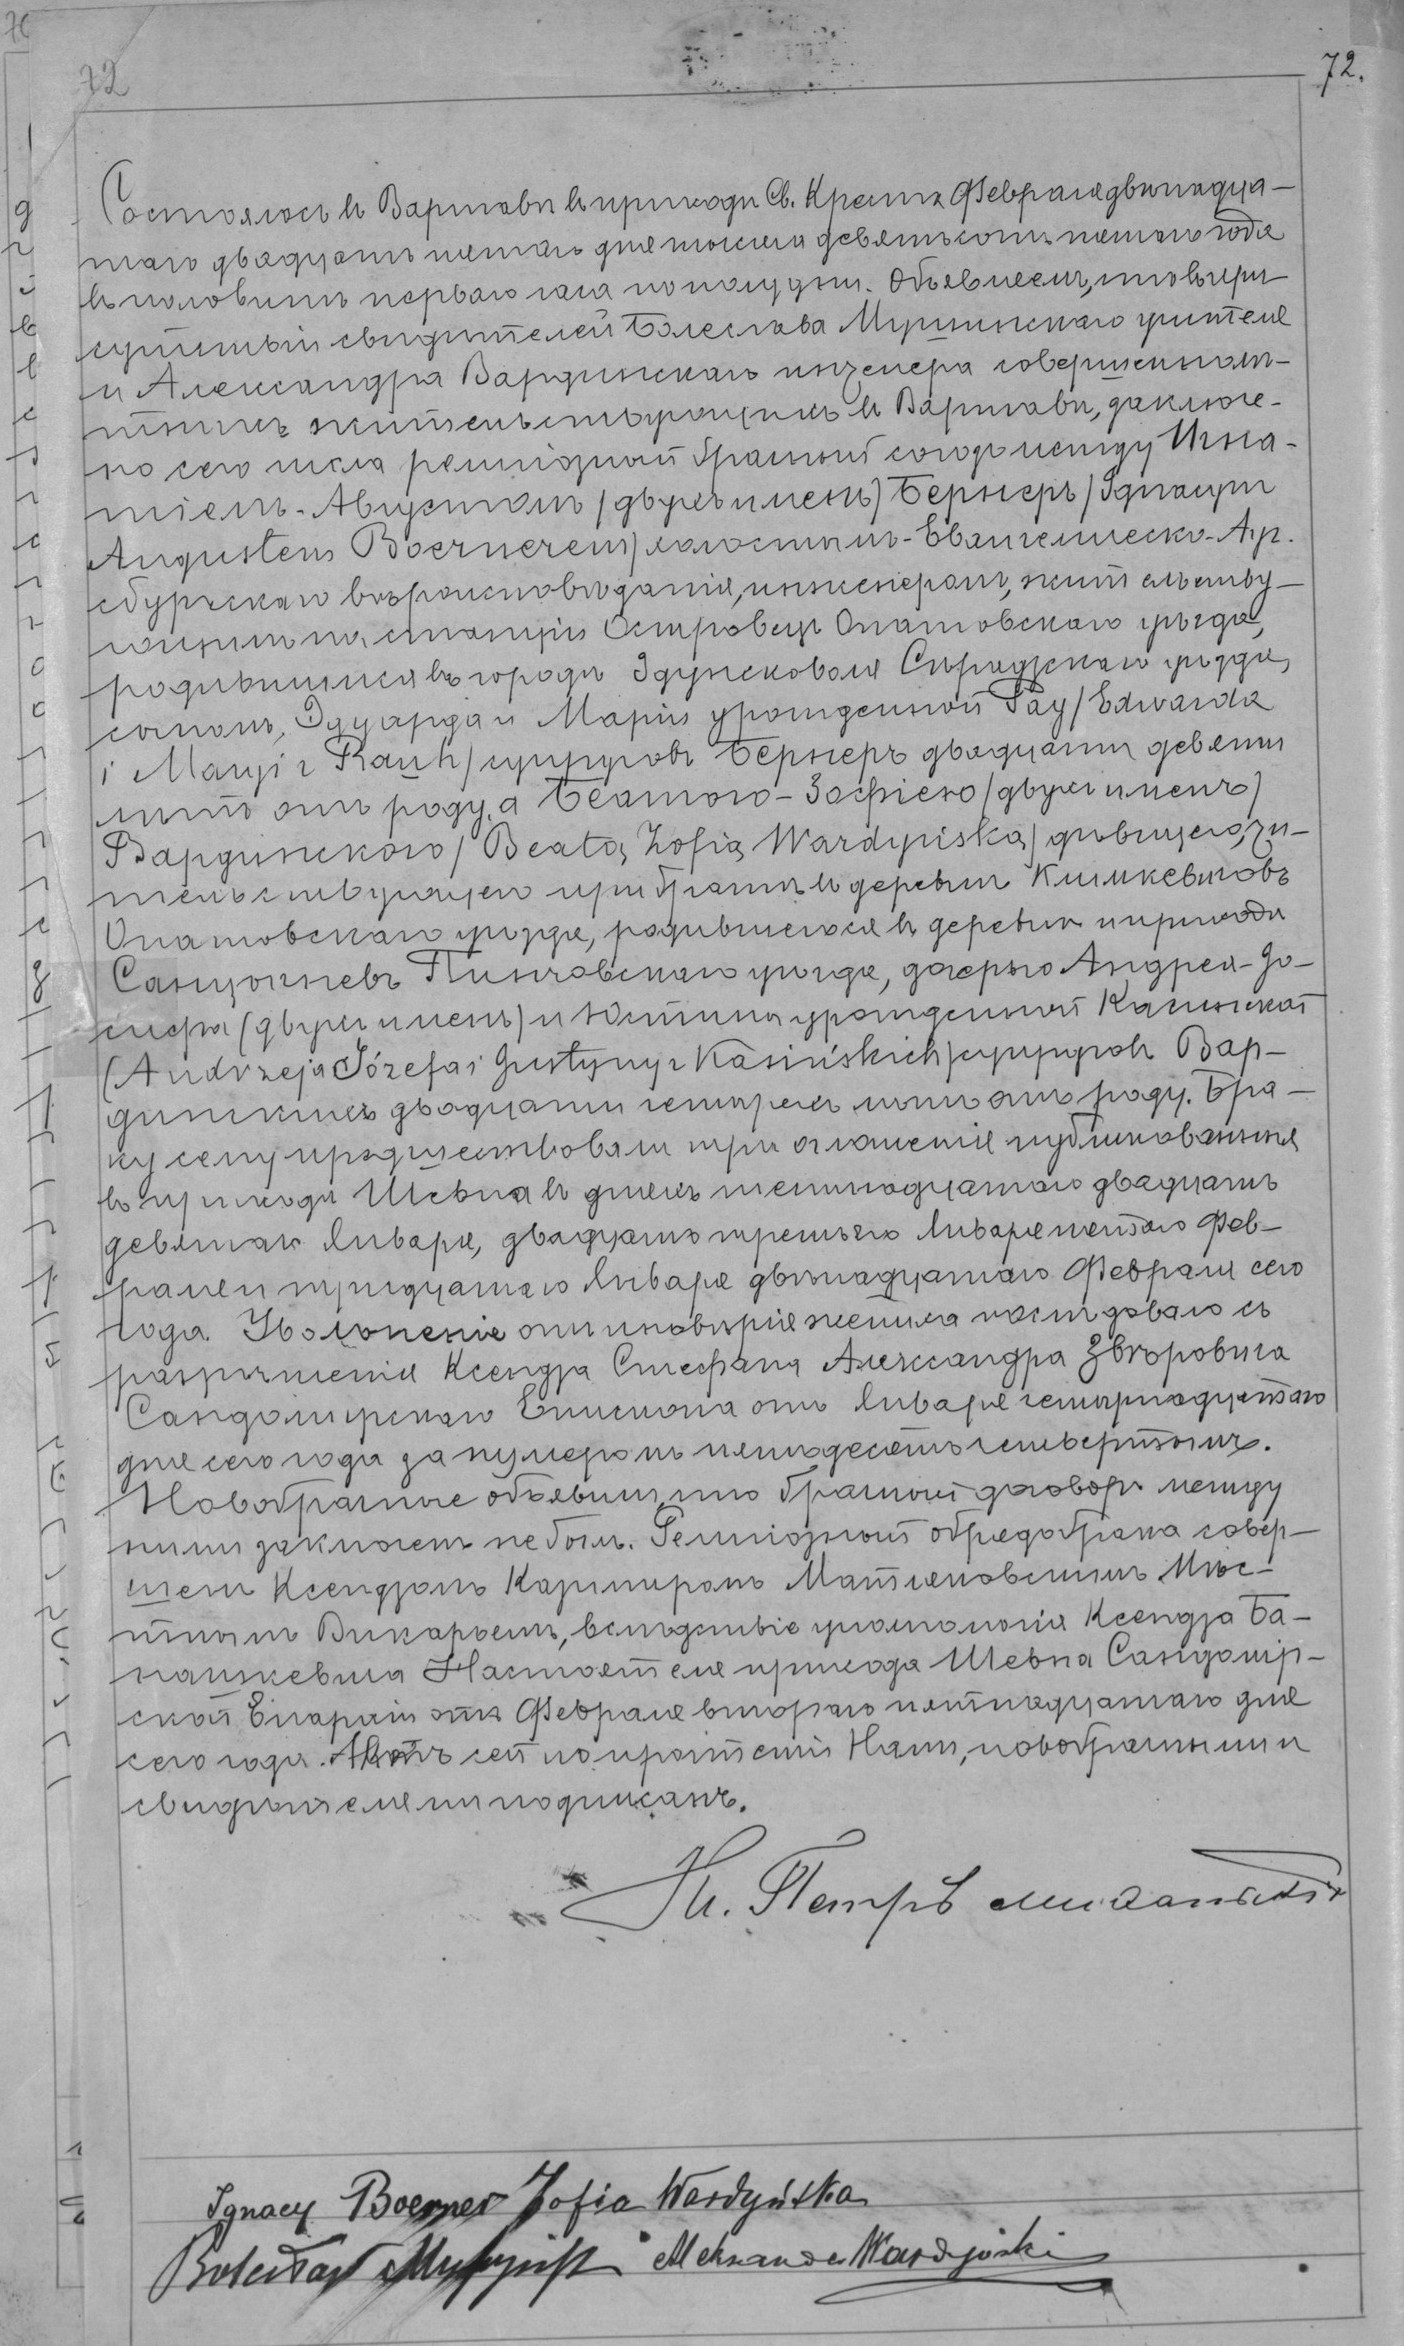 72
72.
Состоялось въ Варшавѣ въ приходѣ Св. Креста Февраля двѣнадца-
таго двадцать пятаго дня тысяча девятьсотъ пятаго года
въ половинѣ перваго часа пополудни. Объявляемъ, что въ при-
сутствіи свидѣтелей Болеслава учителя
и Александра Вардинскаго инженера совершеннолѣ-
тнихъ жительствующихъ въ Варшавѣ, заключе-
но сего числа религіозный брачный союзъ между Игна-
тіемъ-Августомъ /двухъ именъ/ Бернеръ /Ignacym
Augustem Boernerem/ холостымъ-Евангелическо-Ауг-
сбургскаго вѣроисповѣданія, инженеромъ, жительству-
ющимъ на станціи Островецъ Опатовскаго уѣзда,
родившимся въ городѣ Здунсковоля Сѣрадзскаго уѣзда,
сыномъ, Эдуарда и Маріи урожденной Рау /Edwarda
i Maryi z Rauh/ супруговъ Бернеръ двадцати девяти
лѣтъ отъ роду, а Беатою-Зофіею /двухъ именъ/
Вардинскою /Beatą Zofią Wardyńską/ дѣвицею, жи-
тельствующею при братѣ въ деревнѣ Климкевичовъ
Опатовскаго уѣзда, родившеюся въ деревнѣ и приходѣ
Санцыгневъ Пинчовскаго уѣзда, дочерью Андрея-Іо-
сифа (двухъ именъ) и Юстины урожденной Касинской
(Andrzeja Józefa i Justyny z Kasińskich) супруговъ Вар-
динскихъ двадцати четырехъ лѣтъ отъ роду. Бра-
ку сему предшествовали три оглашенія публикованныя
въ приходѣ Шевна въ дняхъ шестнадцатаго двадцать
девятаго Января, двадцать третьяго Января пятаго Фев-
раля и тридцатаго Января двѣнадцатаго Февраля сего
года. Увольненіе отъ иновѣрія жениха послѣдовало съ
разрѣшенія Ксендза Стефана Александра Звѣровича
Сандомирскаго Епископа отъ Января четырнадцатаго
дня сего года за нумеромъ пятьдесятъ четвертымъ.
Новобрачные объявили, что брачный договоръ между
ними заключенъ не былъ. Религіозный обрядъ брака совер-
шенъ Ксендзомъ Казимиромъ Мѣс-
тнымъ Викарьемъ, вслѣдствіе уполномочія Ксендза Ба-
нашкевича Настоятеля прихода Шевна Сандомір-
ской Епархіи отъ Февраля втораго пятнадцатаго дня
сего года. Актъ сей по прочтеніи Нами, новобрачными и
свидѣтелями подписанъ.
Кс. Петръ
Ignacy Boerner Zofia Wardyńska
Bolesław Aleksander Wardyński